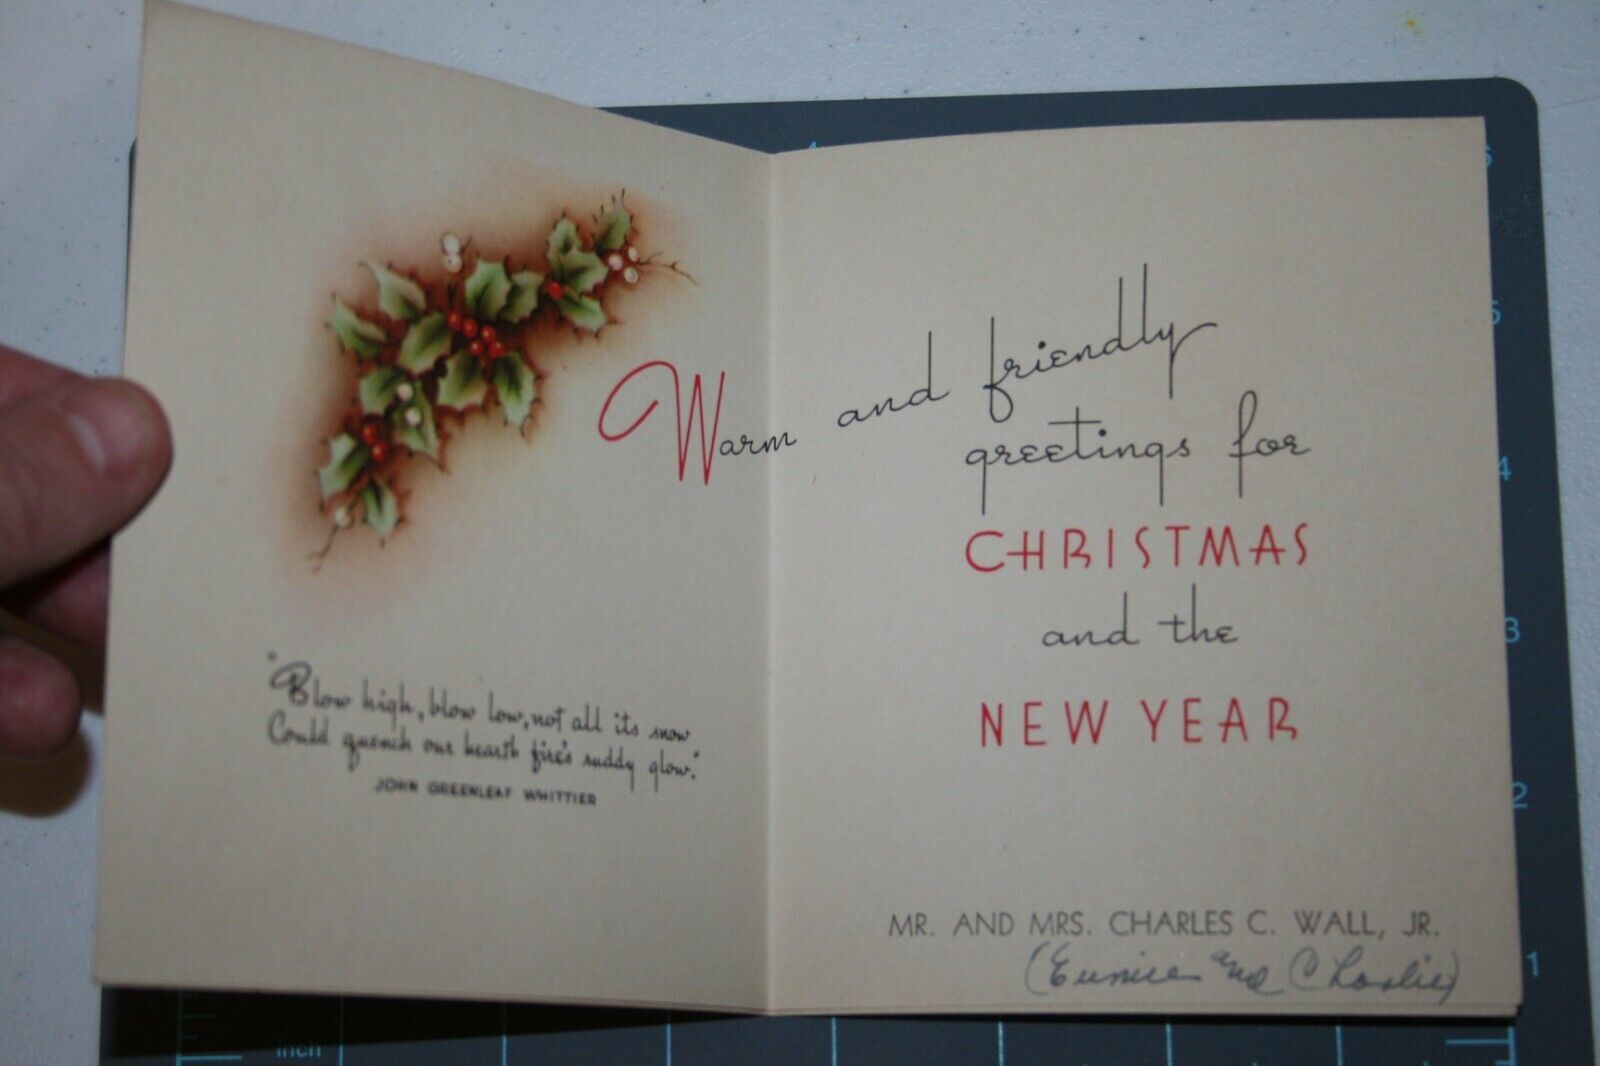 "Blow high, blow low, not all its snow
Could quench our hearth fire's ruddy glow."
JOHN GREENLEAF WHITTIER
Warm and friendly
greetings for
CHRISTMAS
and the
NEW YEAR
MR. AND MRS. CHARLES C. WALL, JR.
(Eunice and Charlie)
4
6
5
4
3
2
1
inch